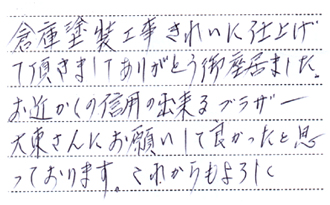 倉庫塗装工事きれいに仕上げ
て頂きましてありがとう御座居ました。
お近かくの信用の出来るブラザー
大東さんにお願いして良かったと思
っております。これからもよろしく